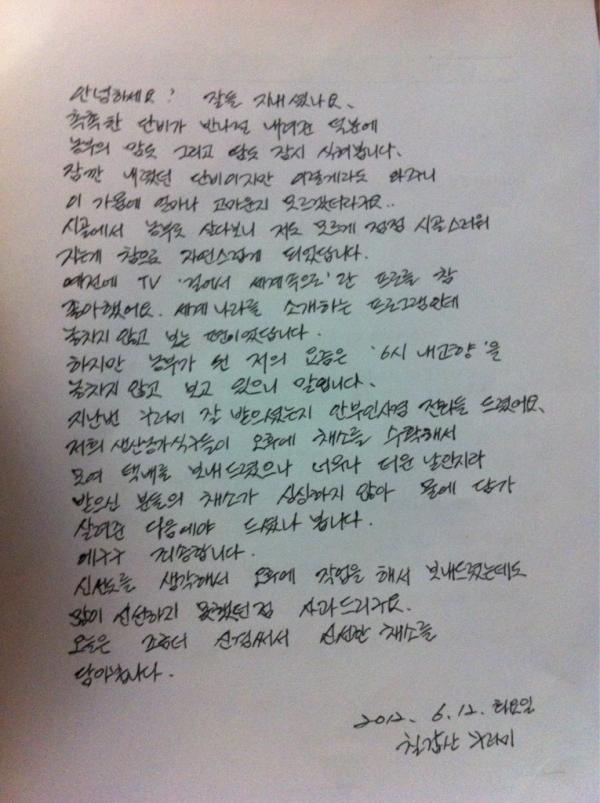 안녕하세요? 잘들 지내셨나요.
촉촉한 단비가 반나절 내려준 덕분에
농부의 맘도 그리고 땅도 잠시 식혀봅니다.
잠깐 내렸던 단비이지만 이렇게라도 와주니
이 가뭄에 얼마나 고마운지 모르겠더라구요..
시골에서 농부로 살다보니 저도 모르게 점점 시골스러워
지는게 참으로 자연스럽게 되었답니다.
예전에 TV '걸어서 세계속으로'란 프로를 참
좋아했어요. 세계 나라를 소개하는 프로그램인데
놓치지 않고 보는 편이였답니다.
하지만 농부가 된 저의 요즘은 '6시 내고향'을
놓치지 않고 보고 있으니 말입니다.
지난번 꾸러미 잘 받으셨는지 안부인사겸 전화를 드렸어요.
저희 생산농가식구들이 오후에 채소를 수확해서
모여 택배를 보내드렸으나 너무나 더운 날인지라
받으신 분들의 채소가 싱싱하지 않아 물에 담가
살려준 다음에야 드셨나 봅니다.
에구구 죄송합니다.
신선도를 생각해서 오후에 작업을 해서 보내드렸는데도
많이 신선하지 못했던 점 사과드리구요.
오늘은 조금더 신경써서 신선한 채소를
담아봅니다.
2012. 6. 12. 화요일
칠갑산 꾸러미